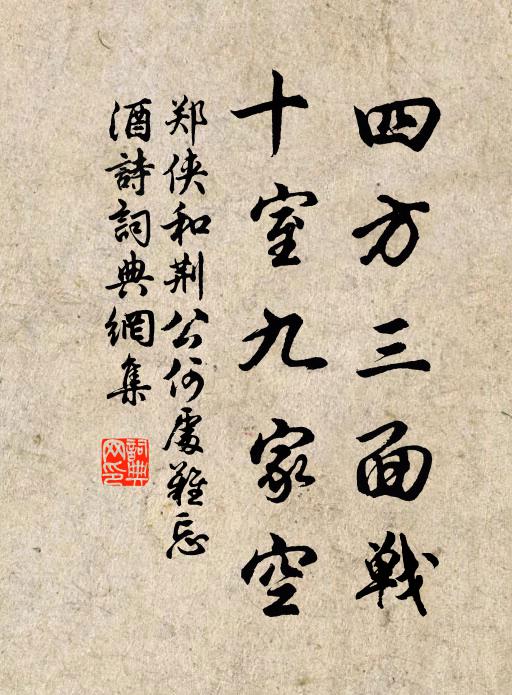 四方三面戦
十室九家空
郑侠和荆公何處難忘
酒詩詞典網集
詞典
网印